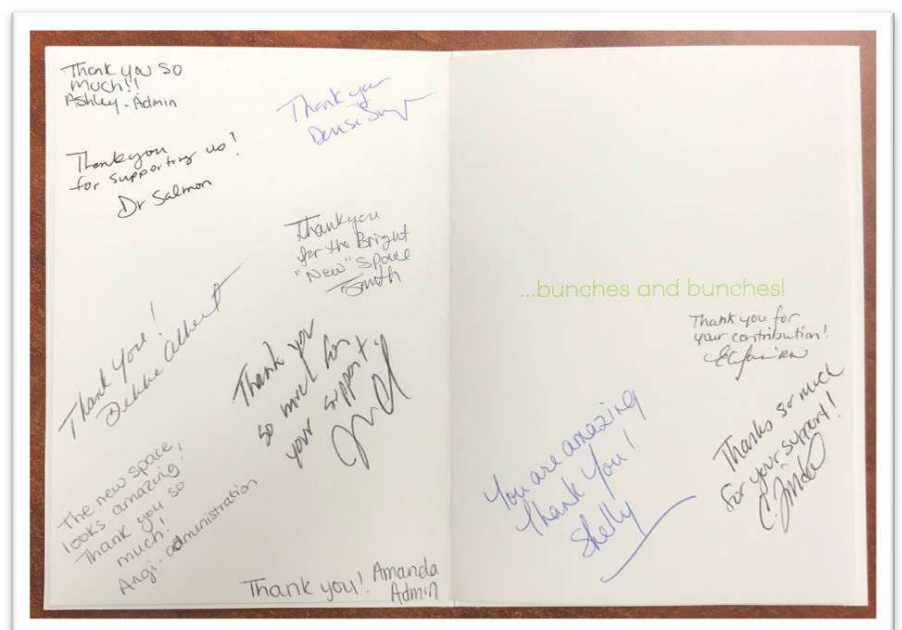 Thank you so
much!!
Ashley - Admin
Thank you
Thank you
for supporting us!
Dr Salmon
Thank you
for the Bright
"New" Space
Smith
Thank you!
Debbie Albert
Thank you
so much for
your support.
The new space
looks amazing!
Thank you so
much!
Angi - administration
Thank you! Amanda
Admin
...bunches and bunches!
Thank you for
your contribution!
You are amazing
Thank You!
Shelly
Thanks so much
for your support!